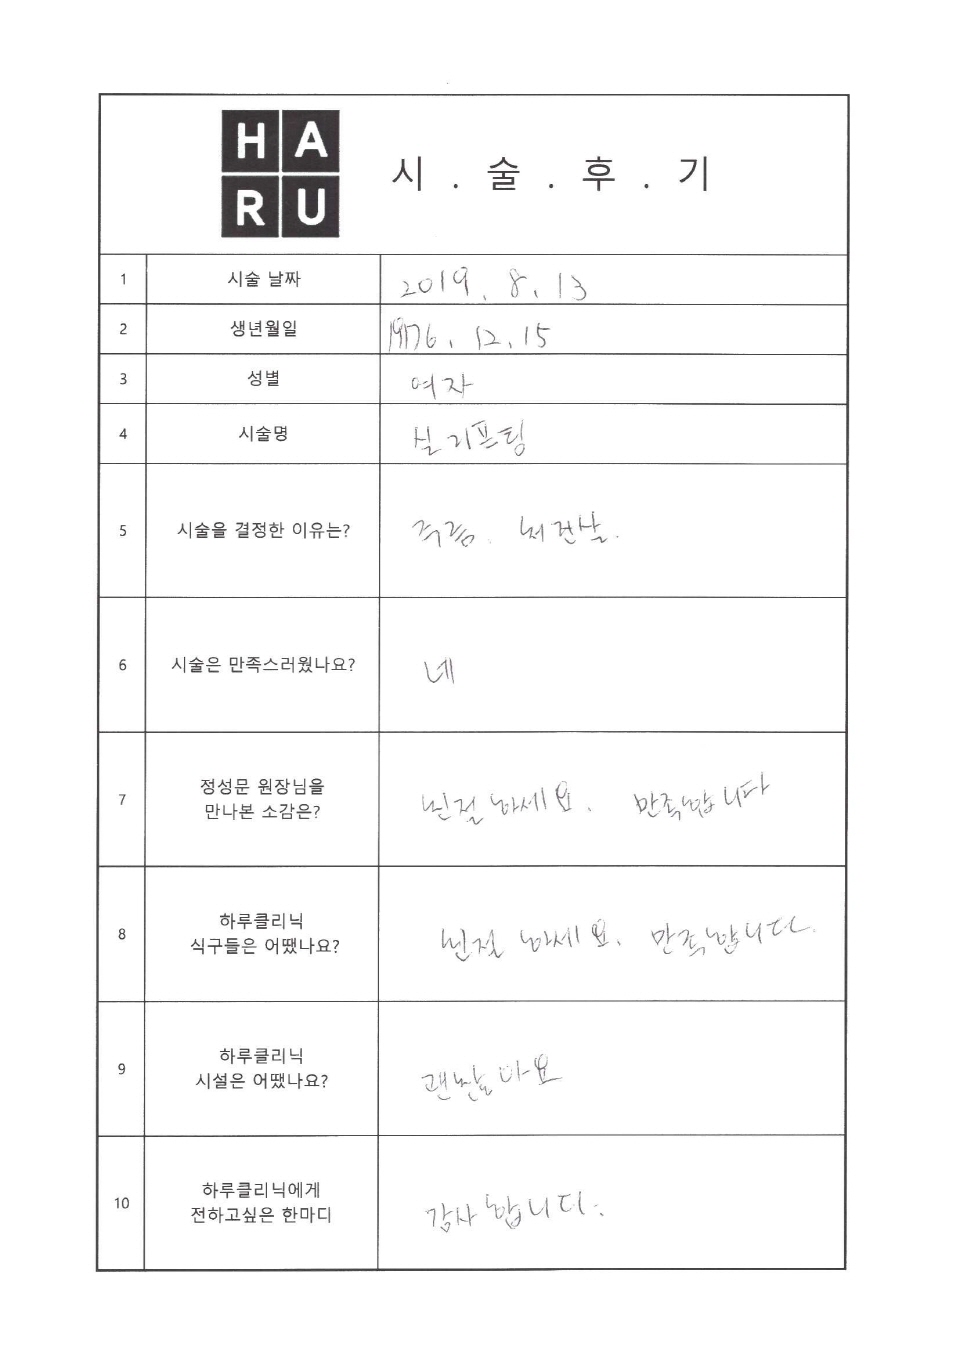 HA
RU
시.술.후.기
1 시술 날짜 2019. 8. 13
2 생년월일 1976. 12. 15
3 성별 여자
4 시술명 실리프팅
5 시술을 결정한 이유는? 주름. 처진살.
6 시술은 만족스러웠나요? 네
7 정성문 원장님을
만나본 소감은? 친절하세요. 만족합니다
8 하루클리닉
식구들은 어땠나요? 친절하세요. 만족합니다.
9 하루클리닉
시설은 어땠나요? 괜찮아요
10 하루클리닉에게
전하고싶은 한마디 감사합니다.